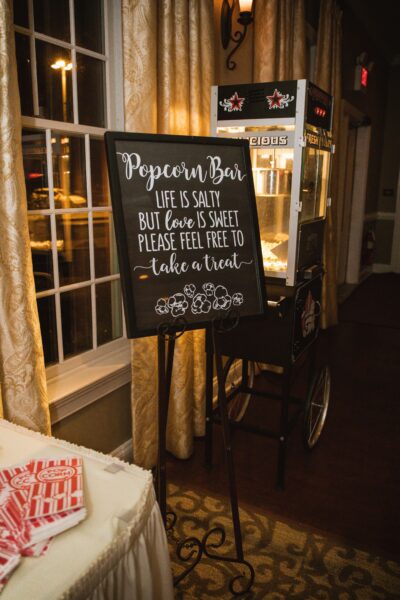 Popcorn Bar
LIFE IS SALTY
BUT love IS SWEET
PLEASE FEEL FREE TO
take a treat
POP
CORN